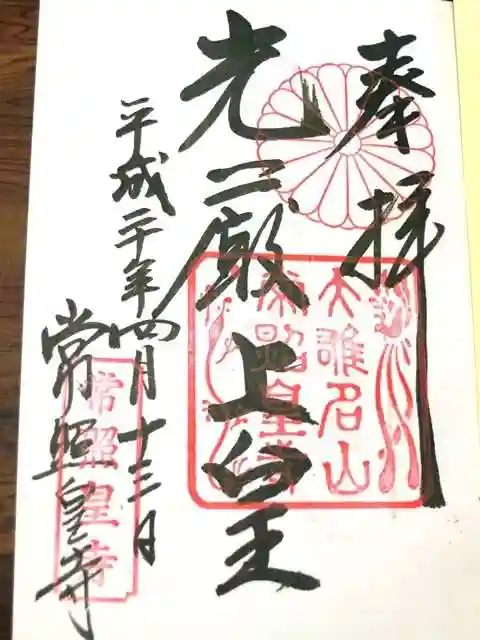 奉拝
光厳上皇
平成二十年四月十三日
常照皇寺
大雄名山
常照皇寺